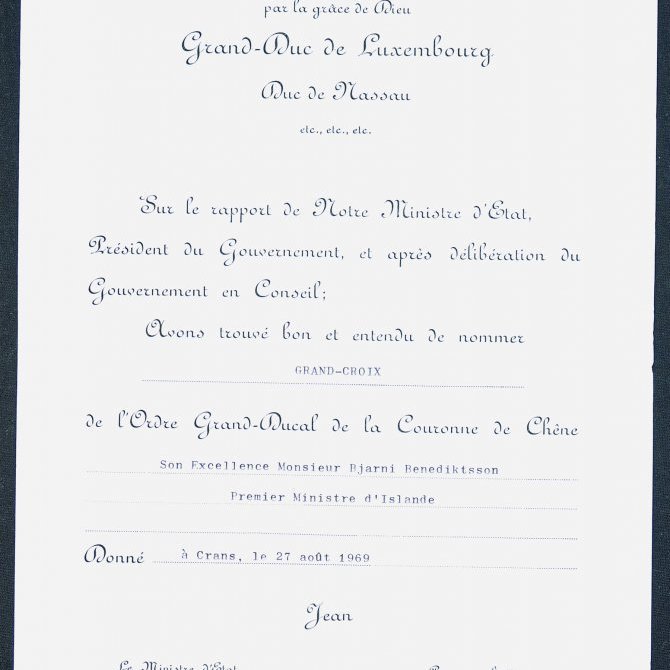 par la grâce de Dieu
Grand-Duc de Luxembourg
Duc de Nassau
etc., etc., etc.
Sur le rapport de Notre Ministre d'Etat,
Président du Gouvernement, et après délibération du
Gouvernement en Conseil;
Avons trouvé bon et entendu de nommer
GRAND-CROIX
de l'Ordre Grand-Ducal de la Couronne de Chêne
Son Excellence Monsieur Bjarni Benediktsson
Premier Ministre d'Islande
Donné à Crans, le 27 août 1969
Jean
Le Ministre d'Etat